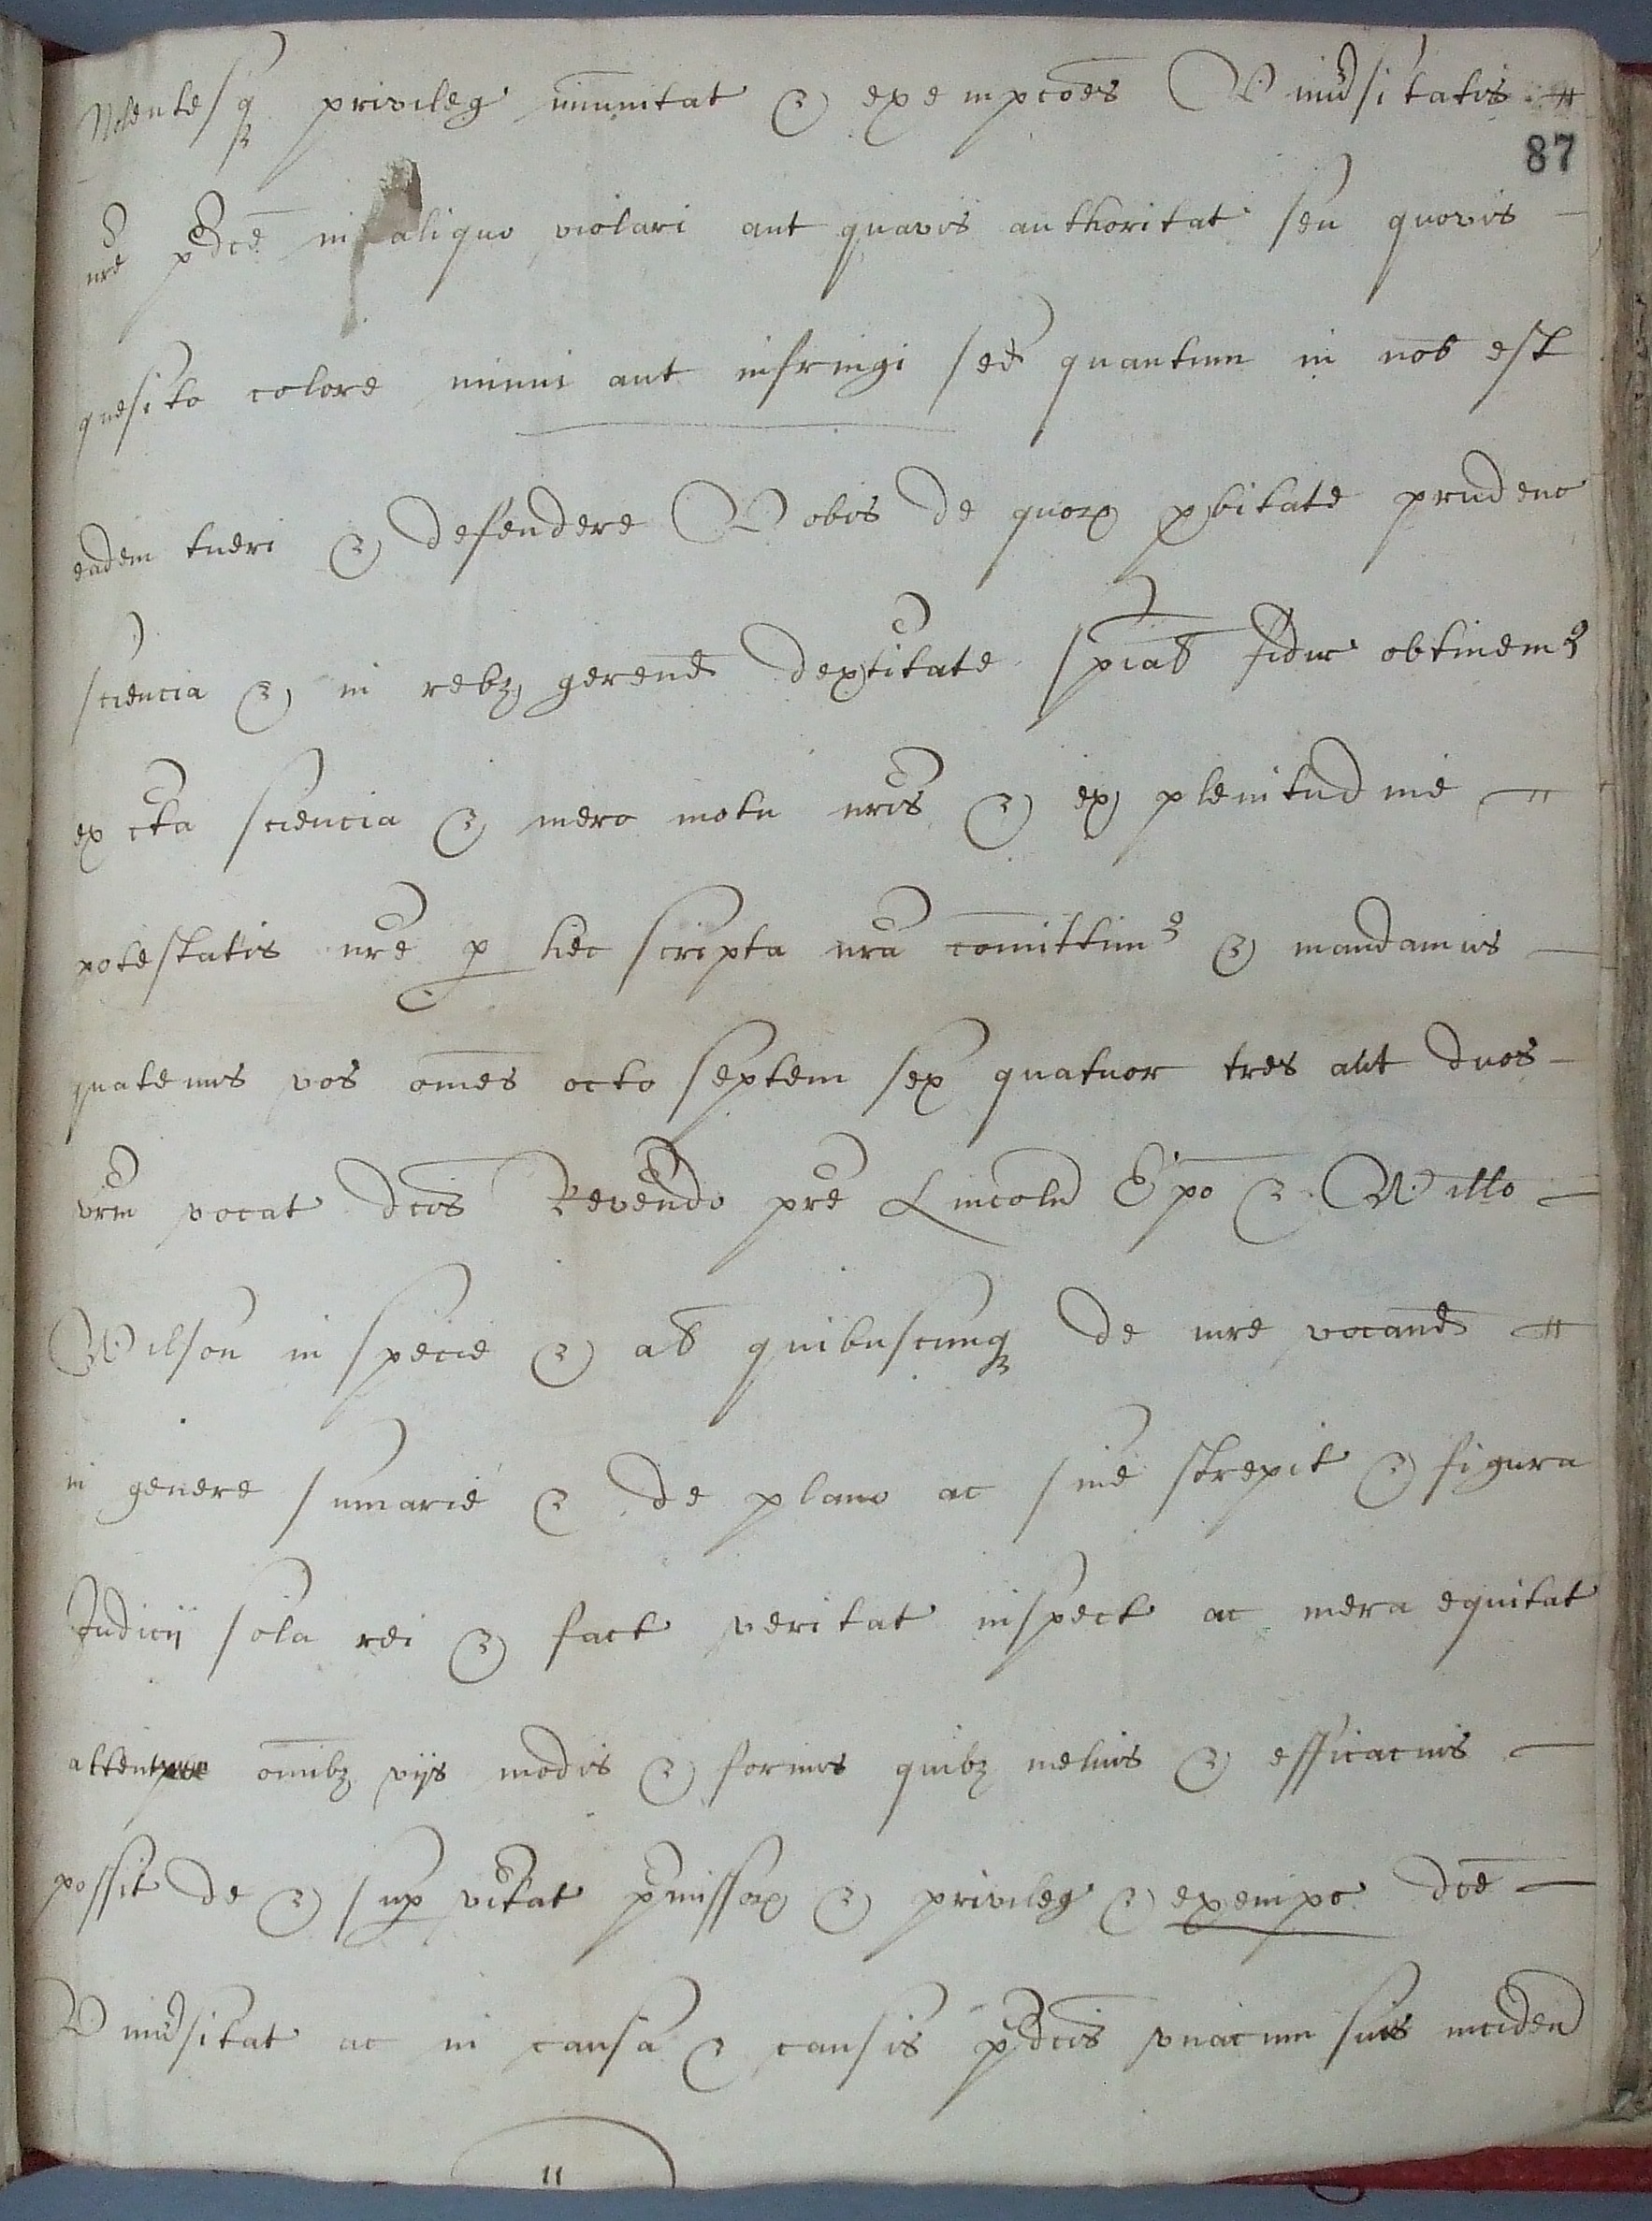 Nolentesq privileg imunitat & exempcoes Universitatis
87
nre pdce in aliquo violari aut quavis authoritat seu quovis
quesito colore minui aut infringi sed quantum in nob est
eadem tueri & defendere Vobis de quor pbitate prudenc
sciencia & in rebz gerend dextitate spiali fiduc obtinem9
ex cta sciencia & mero motu nris & ex plenitudine
potestatis nre p hec scripta nra comittim9 & mandamus
quatenus vos omes octo septem sex quatuor tres aut duos
vrm vocat dcis Revendo pre Lincoln Epo & Willo
Wilson in specie & al quibuscunq de iure vocand
in genere sumarie & de plano ac sine strepit & figura
Judicij sola rei & fact veritat inspect ac mera equitat
omibz vijs modis & formis quibz melius & efficacius
possit de & sup vitat pmissor & privileg & exempc dce
Universitat ac in causa & causis pdcis unacum suis inciden
11